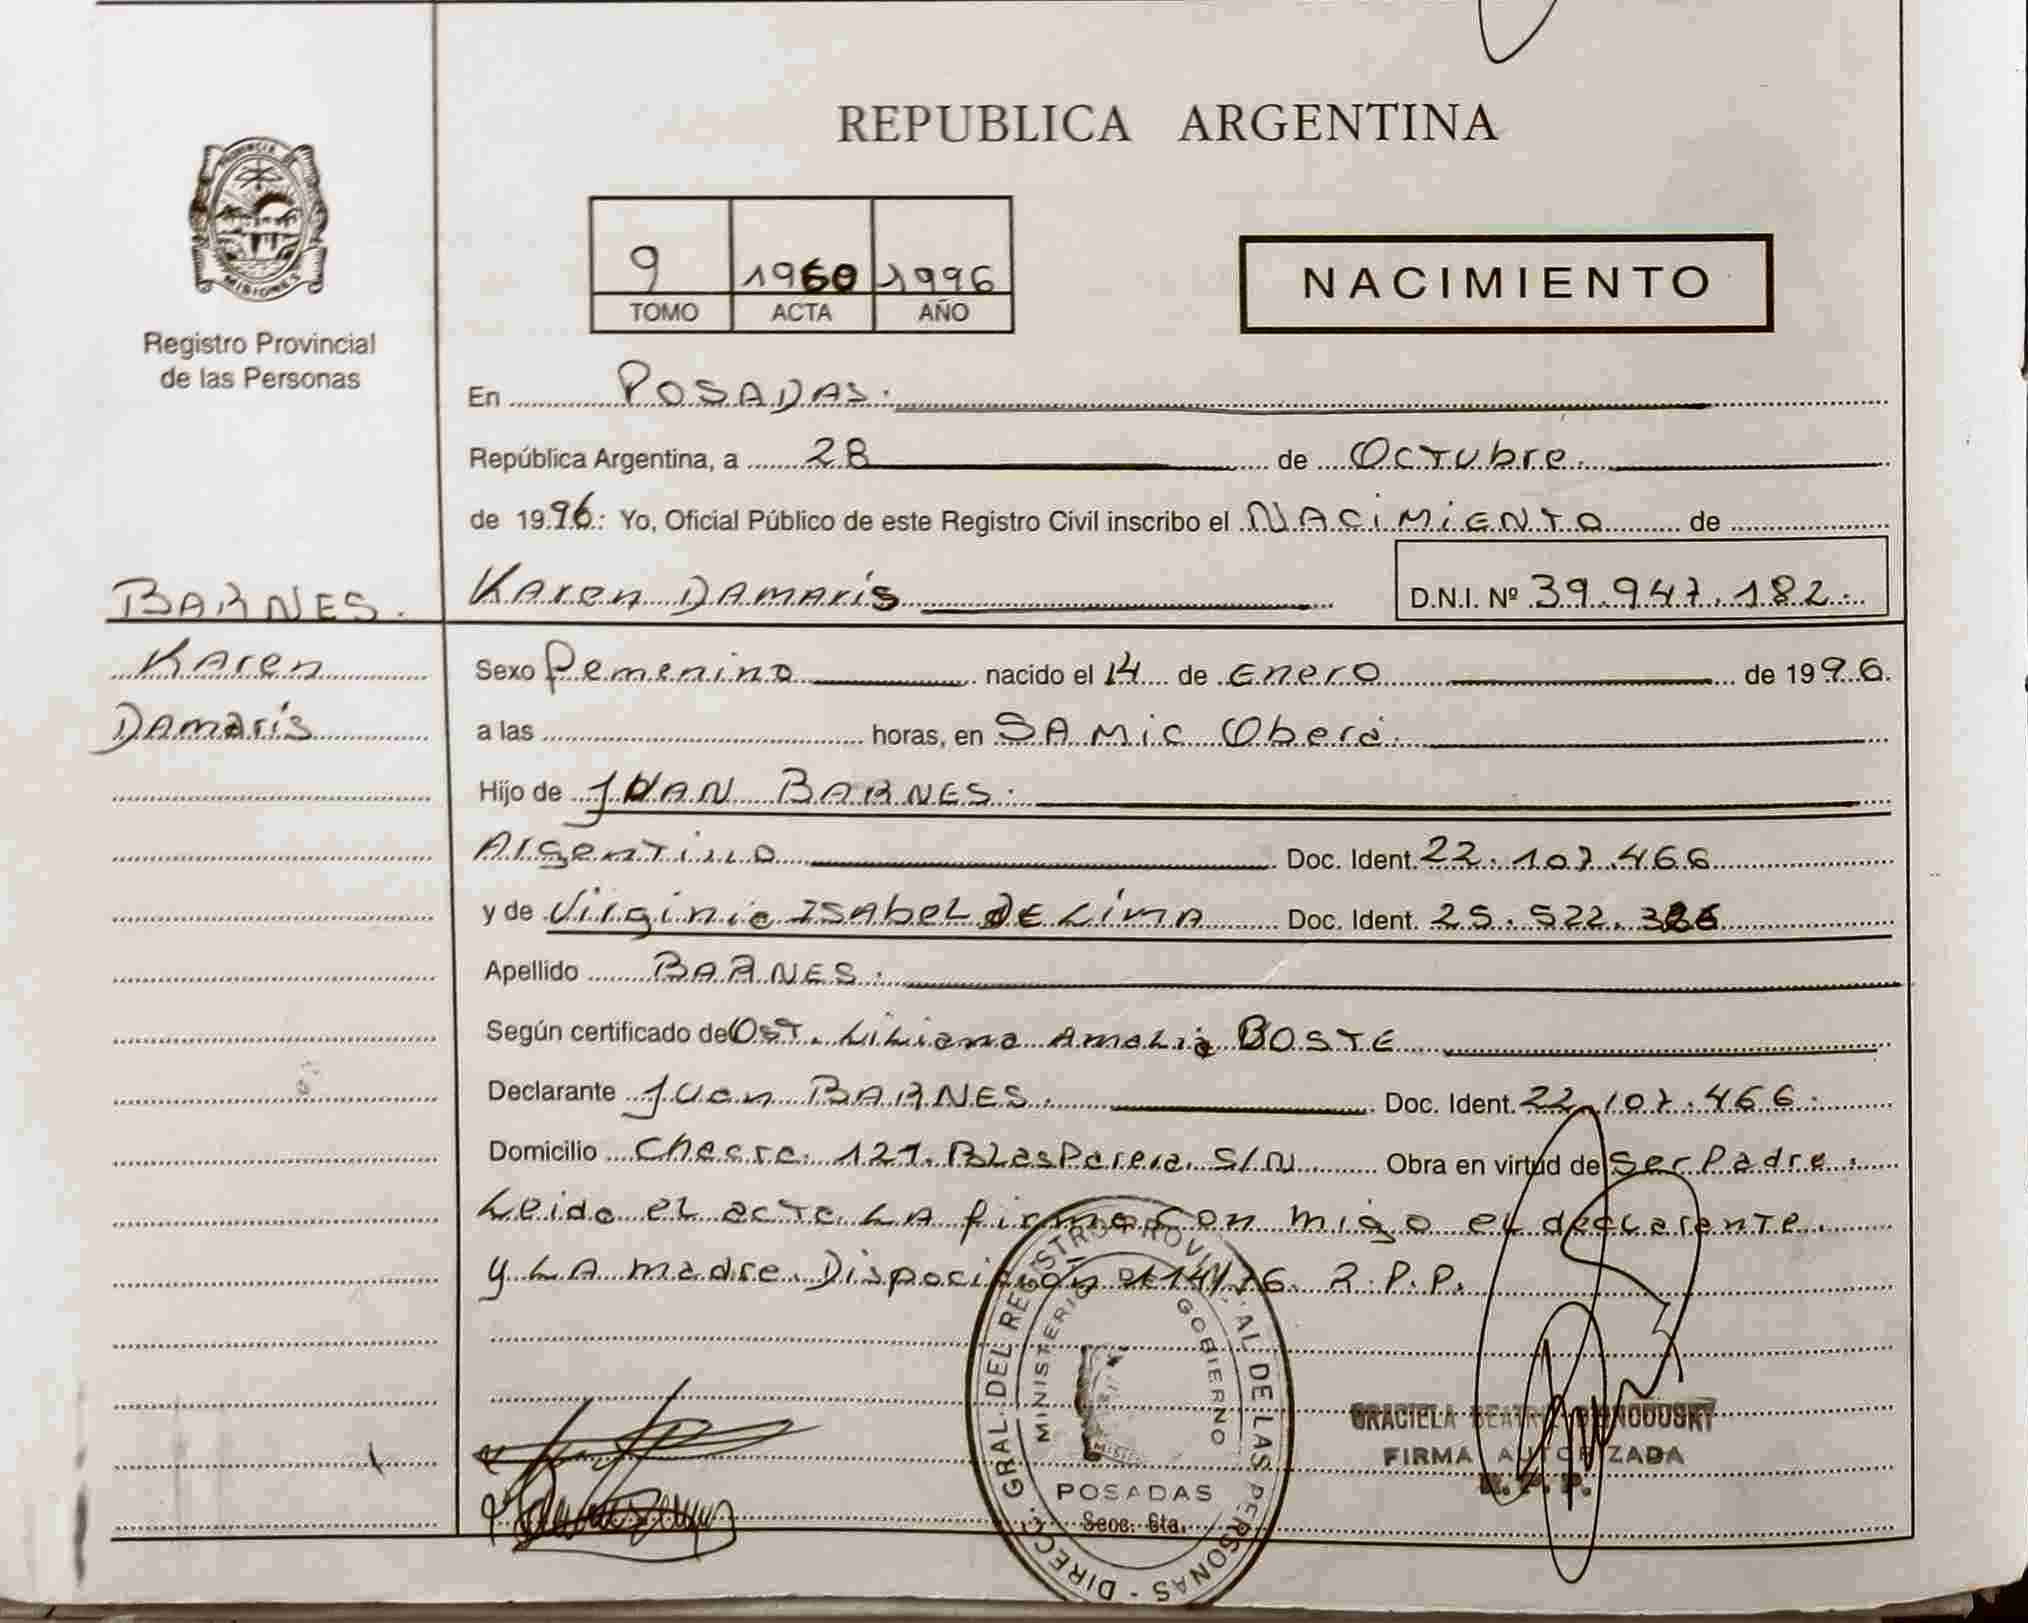 REPUBLICA ARGENTINA
PROVINCIA DE
MISIONES
Registro Provincial
de las Personas
9 1960 1996
TOMO ACTA AÑO
NACIMIENTO
En POSADAS.
República Argentina, a 28 de Octubre.
de 1996: Yo, Oficial Público de este Registro Civil inscribo el NACIMIENTO de
BARNES.
Karen
Damaris
Karen DAMARIS D.N.I. Nº 39.947.182.
Sexo Femenino nacido el 14 de Enero de 1996.
a las horas, en SAMIC Oberá.
Hijo de JUAN BARNES.
Argentino Doc. Ident. 22.107.466
y de Virginia ISABEL DE LIMA Doc. Ident. 25.522.
Apellido BARNES.
Según certificado de Ost. Liliana Amalia BOSTE
Declarante Juan BARNES. Doc. Ident. 22.107.466.
Domicilio Chacra. 121. Blas Parera. S/N Obra en virtud de Ser Padre.
Leida el acta LA firma con migo el declarante.
y LA madre. Dispocición 14/76. R.P.P.
DIRECC. GRAL. DEL REGISTRO PROVINCIAL DE LAS PERSONAS -
MINISTERIO DE GOBIERNO
POSADAS
Secc. 6ta.
GRACIELA BEATRIZ
FIRMA AUTORIZADA
R. P. P.